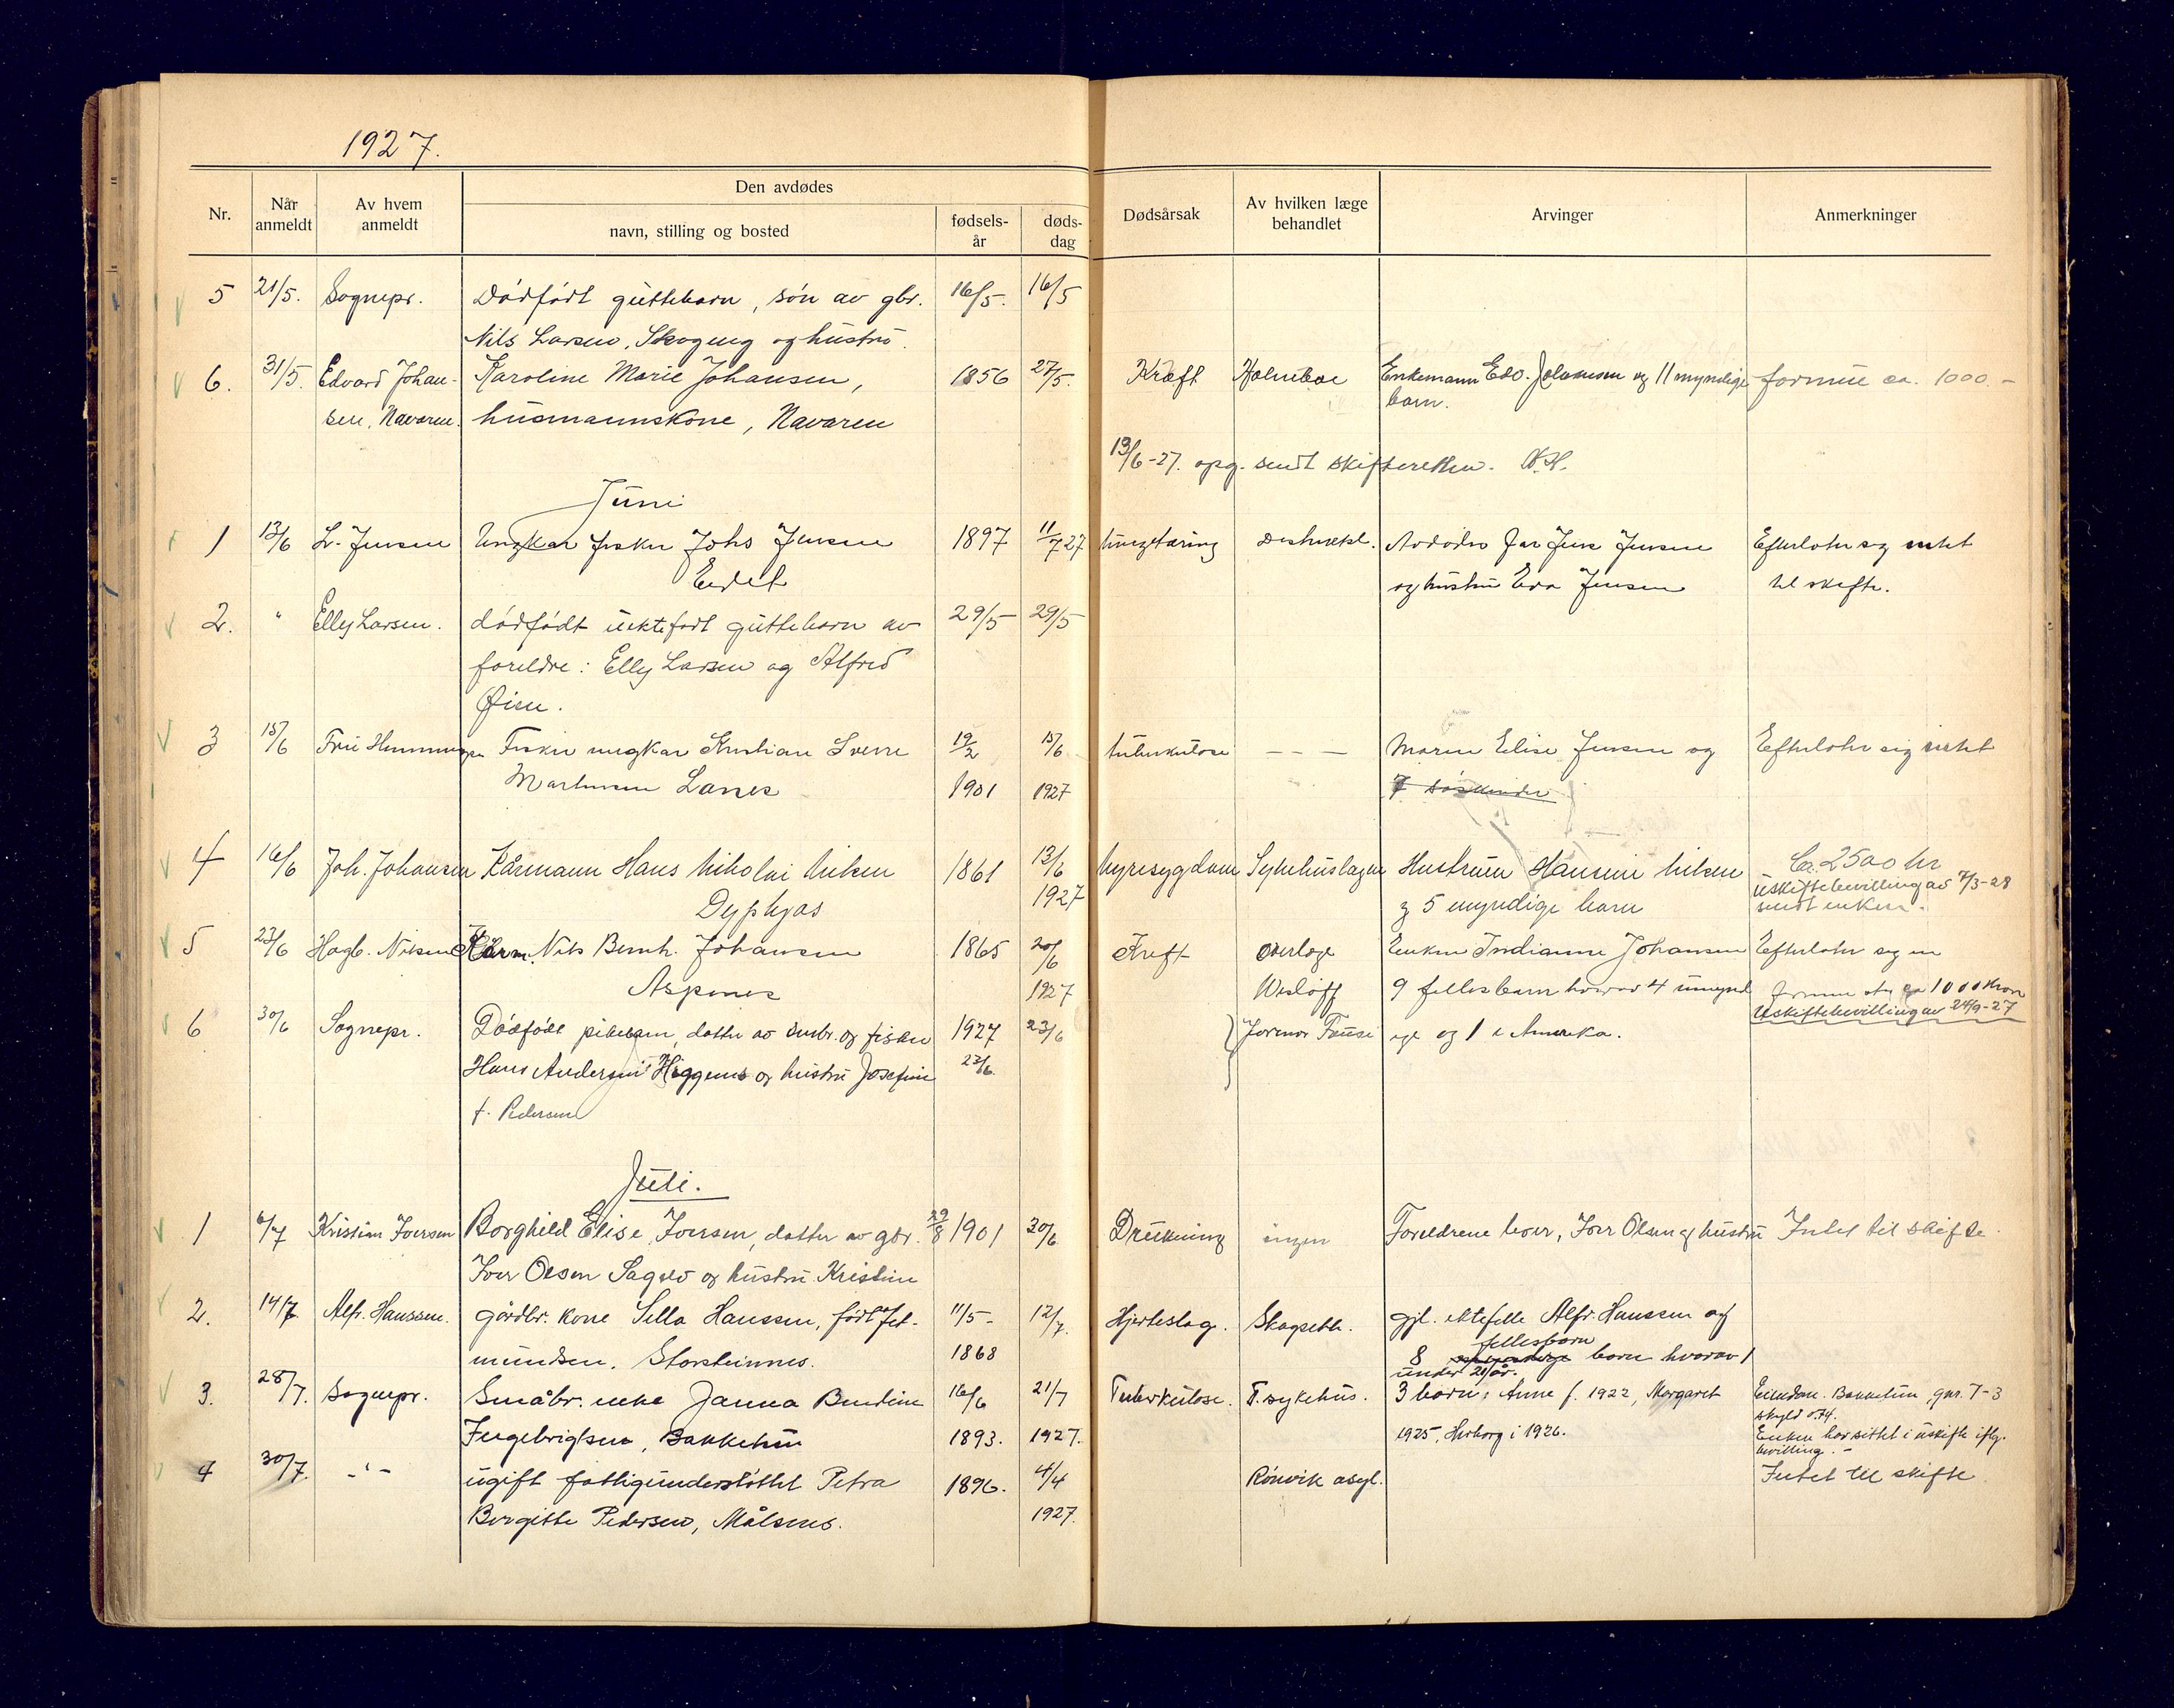 1927.
Nr.
Når anmeldt
Av hvem anmeldt
Den avdødes
navn, stilling og bosted
fødsels-år
døds-dag
Dødsårsak
Av hvilken læge behandlet
Arvinger
Anmerkninger
5 21/5. Sognepr. Dödfödt guttebarn, sön av gbr. 16/5. 16/5
Nils Larsen, Skogeng og hustru.
6. 31/5. Edvard Johan- Karoline Marie Johansen, 1856 27/5. Kræft Holmboe Enkemann Edv. Johansen og 11 myndige formue ca. 1000.-
sen, Navaren. husmannskone, Navaren barn.
13/6-27. opg. sendt skifteretten. N.H.
Juni
1 13/6 L. Jensen Ungkar fisker Johs Jensen 1897 11/7 27 tungetæring Avdødes far Jens Jensen Efterlater sig intet
Eidet og hustru Eva Jensen til skifte.
2. " Elly Larsen. dödfödt uektefödt guttebarn av 29/5 29/5
foreldre: Elly Larsen og Alfred
Øien.
3 15/6 Fru Henningsen Fisker ungkar Kristian Sverre 19/2 15/6 tuberkulose - - - Maren Elise Jensen og Efterlater sig intet
Martinsen Lanes 1901 1927 7 söskender
4 16/6 Joh. Johansen Kårmann Hans Nikolai Nilsen 1861 13/6 Nyresygdom Sykehuslægen Hustruen Hansine Nilsen Ca. 2500 kr
Dyphjos 1927 og 5 myndige barn uskiftebevilling av 7/3-28
sendt enken.
5 23/6 Hagb. Nilsen Kårm. Nils Bernh. Johansen 1865 20/6 Kreft overlæge Enken Indianne Johansen Efterlater sig en
Aspenes 1927 Wesløff 9 fellesbarn hvorav 4 umynd formue stor ca 1000 kron
6 30/6 Sognepr. Dödfödt pikebarn, datter av smbr. og fisker 1927 23/6 Jormor Tousi ige og 1 i Amerika. Uskiftebevilling av 24/9-27
Hans Andersen Heggenes og hustru Josefine 23/6
f. Pedersen
Juli.
1 6/7 Kristian Iversen Borghild Elise Iversen, datter av gbr. 29/8 1901 20/6 Drukning ingen Foreldrene lever, Iver Olsen og hustru Intet til skifte
Iver Olsen Sagelv og hustru Kristine
2. 14/7 Alfr. Hanssen. gårdbr. kone Sella Hanssen, född Jet- 11/5- 12/7. Hjerteslag. Skogseth. gjl. ektefelle Alfr. Hanssen og
mundsen. Storsteinnes. 1868 8 fellesbarn barn hvorav 1
under 21 år.
3. 28/7. Sognepr. Småbr. enke Janna Bendine 16/6 21/7 Tuberkulose. T. sykehus. 3 barn: Anne f. 1922, Margaret Eiendom. Bakketun, gnr. 7-3
Ingebrigtsen, Bakketun 1893. 1927. 1925, Herborg i 1926. skyld 0.74.
Enken har sittet i uskifte iflg.
bevilling.-
4 30/7. -"- ugift fattigunderstöttet Petra 1896. 4/4 Rönvik asyl. Intet til skifte
Bergitte Pedersen, Målsnes. 1927.